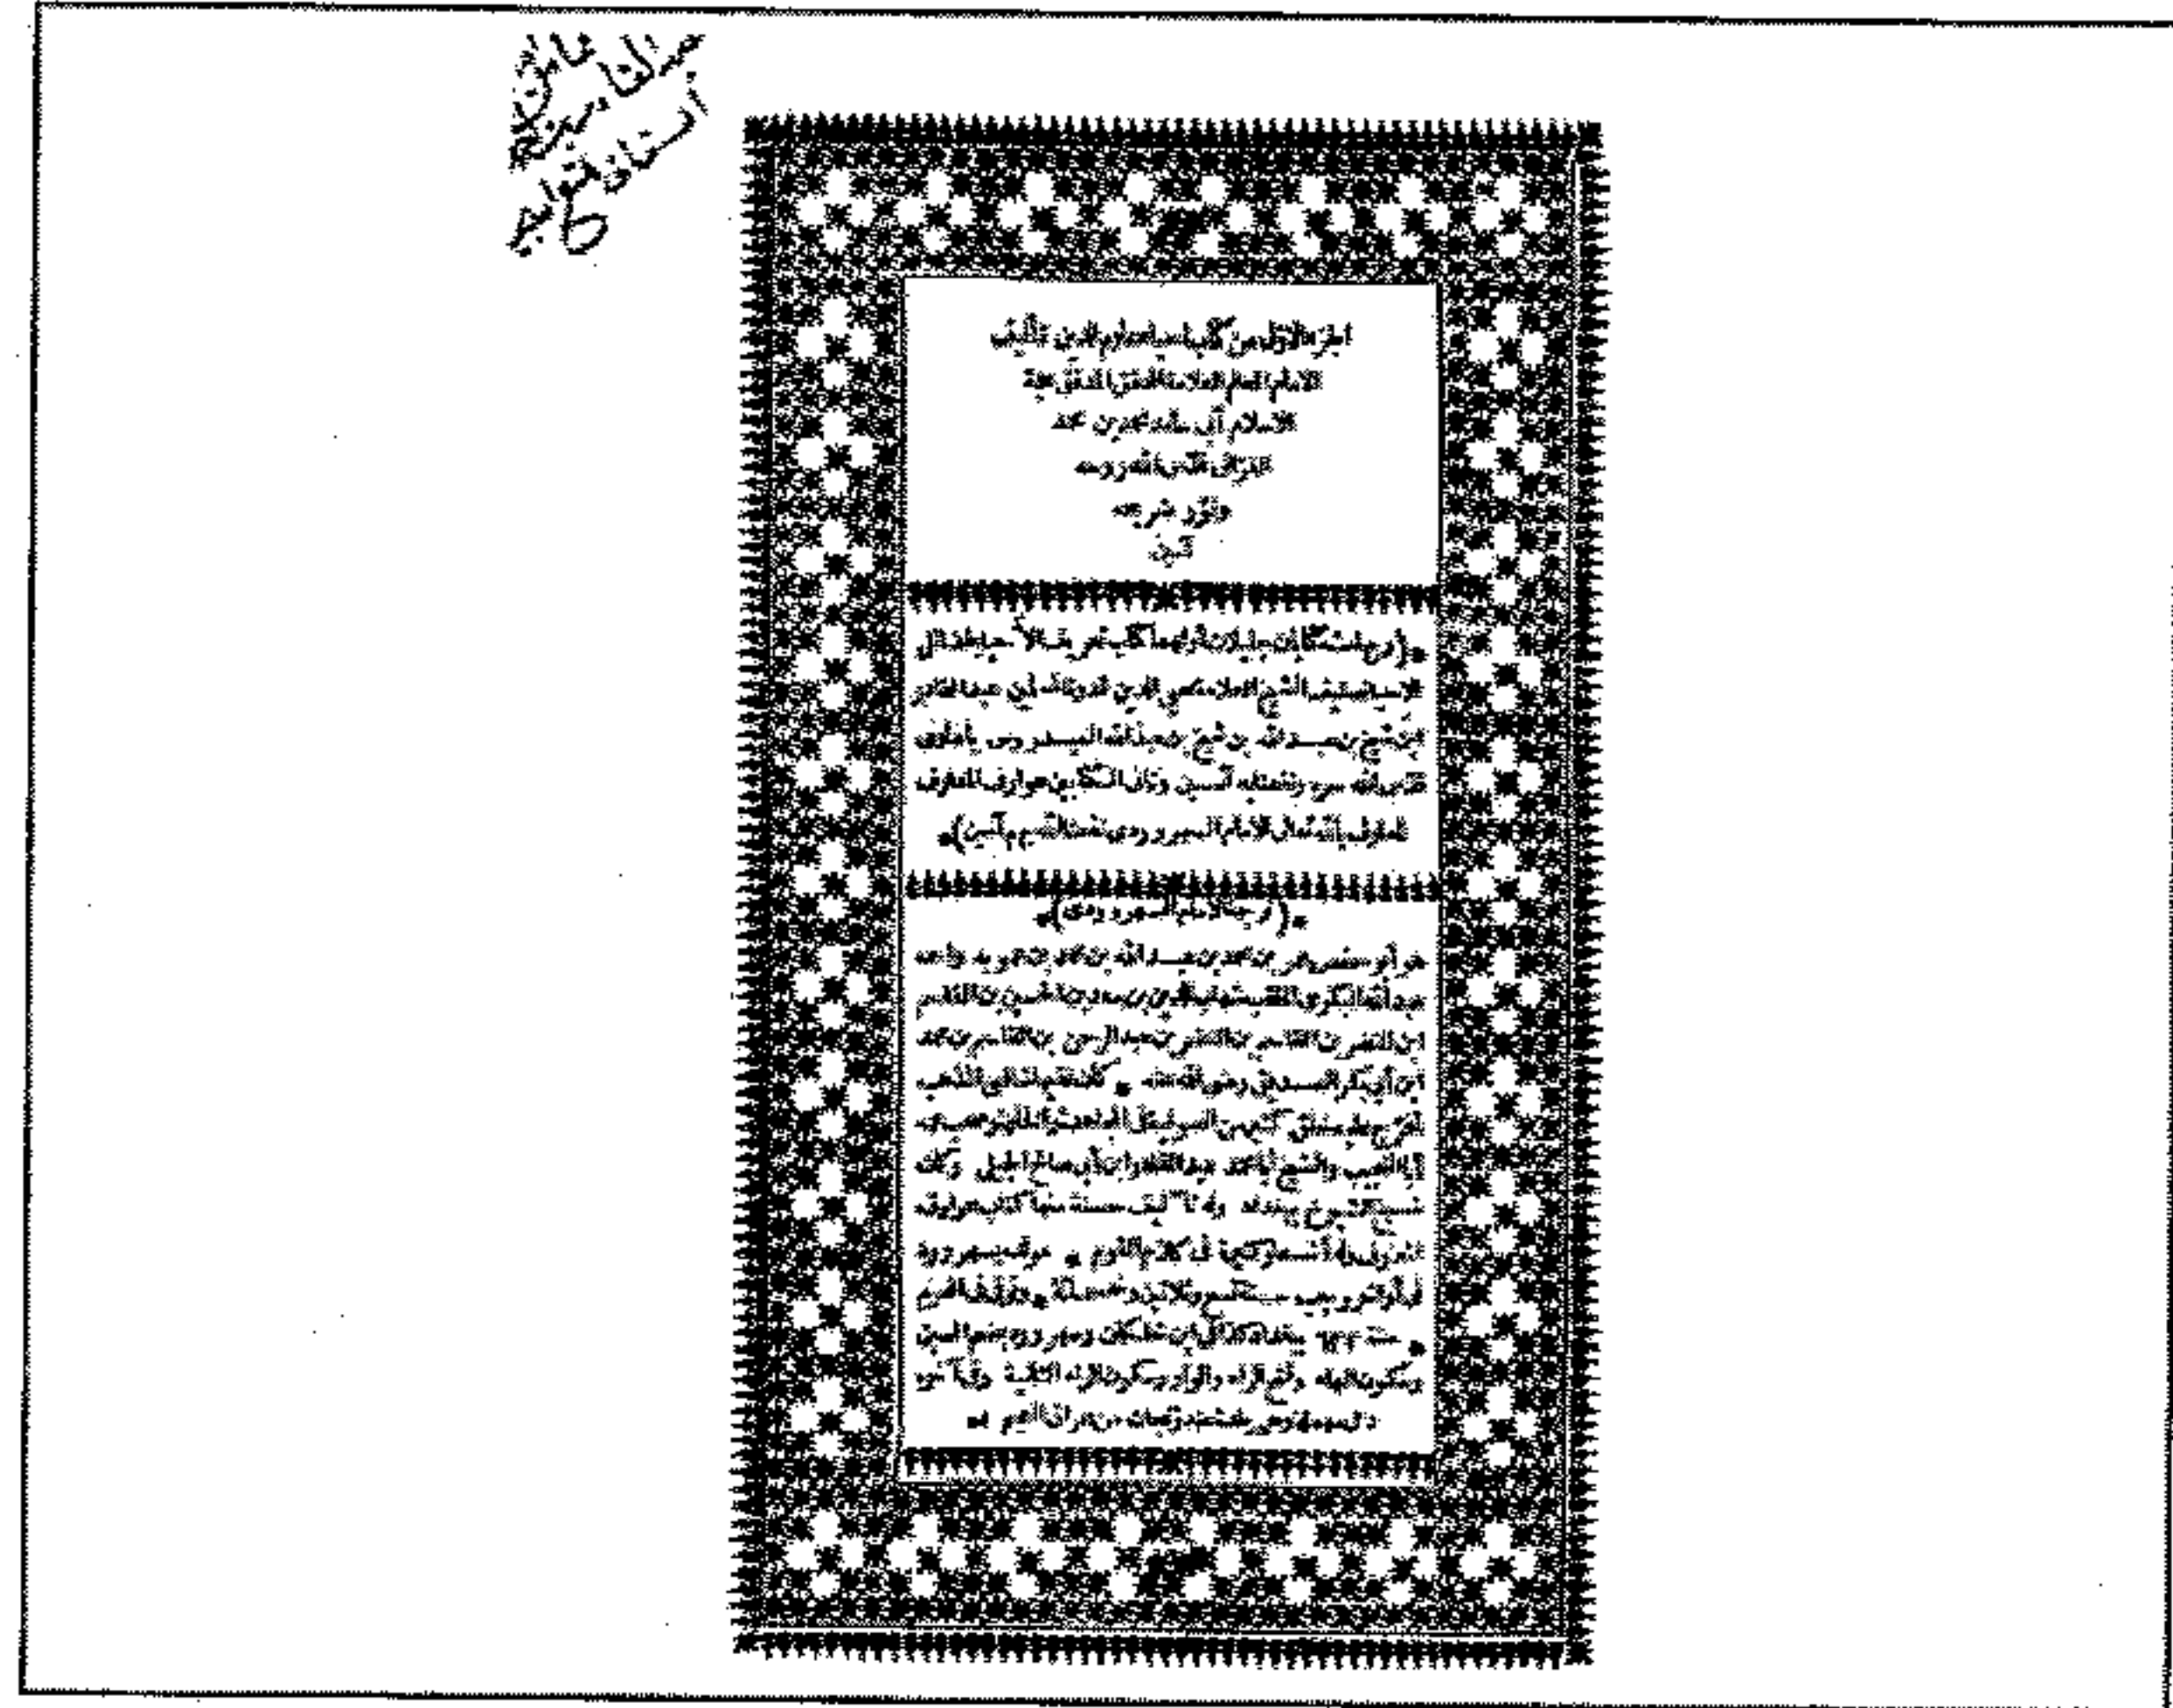 الجزء الاول من كتاب احياء علوم الدين تأليف
الامام العالم العلامة المحقق المدقق حجة
الاسلام أبي حامد محمد بن محمد
الغزالي قدس الله روحه
ونور ضريحه
آمين
(وبهامشه كتابان جليلان أولهما كتاب تعريف الأحياء بفضائل
الاحياء تصنيف الشيخ العلامة محيي الدين عبد القادر
ابن شيخ بن عبد الله بن شيخ بن عبد الله العيدروس باعلوي
قدس الله سره ونفعنا به آمين وثاني الكتابين عوارف المعارف
للعارف بالله تعالى الامام السهروردي نفعنا الله بهم آمين)
(ترجمة الامام السهروردي)
هو أبو حفص عمر بن محمد بن عبد الله بن محمد بن عمويه واسمه
عبد الله البكري الملقب شهاب الدين بن سعد بن الحسين بن القاسم
ابن النضر بن القاسم بن النضر بن عبد الرحمن بن القاسم بن محمد
ابن أبي بكر الصديق رضي الله عنه كان فقيها شافعي المذهب
تخرج عليه خلق كثير من الصوفية في المجاهدة والخلوة وصحب عمه
أبا النجيب والشيخ أبا محمد عبد القادر ابن أبي صالح الجيلي وكان
شيخ الشيوخ ببغداد وله تآليف حسنة منها كتاب عوارف
المعارف وله أشعار كثيرة في كلام القوم مولده بسهرورد
في أواخر رجب سنة تسع وثلاثين وخمسمائة وتوفي في المحرم
سنة ٦٣٢ ببغداد كذا في ابن خلكان وسهرورد بضم السين
وسكون الهاء وفتح الراء والواو وسكون الراء الثانية وفي آخره
دال مهملة وهي بلدة عند زنجان من عراق العجم